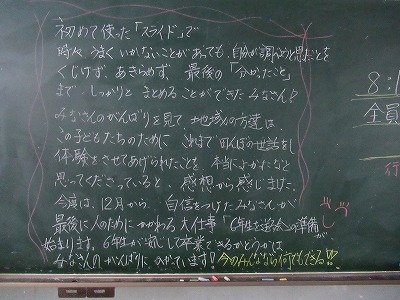 初めて使った「スライド」で
時々 うまくいかないことがあっても、自分が調べようと思ったことを
くじけず、あきらめず、最後の「分かったこと」
まで しっかりと まとめることができたみなさん！
みなさんのがんばりを見て 地域の方達は
この子どもたちのために これまで田んぼの世話をし
体験をさせてあげられたことを 本当によかったなと
思ってくださっていると、感想から感じました。
今度は、12月から、自信をつけたみなさんが
最後に人のために かかわる大仕事「6年生を送る会」の準備が
始まります。6年生が安心して卒業できるかどうかは
みなさんのがんばりに かかっています！今のみんななら何でもできる!!
8:1
全員
行